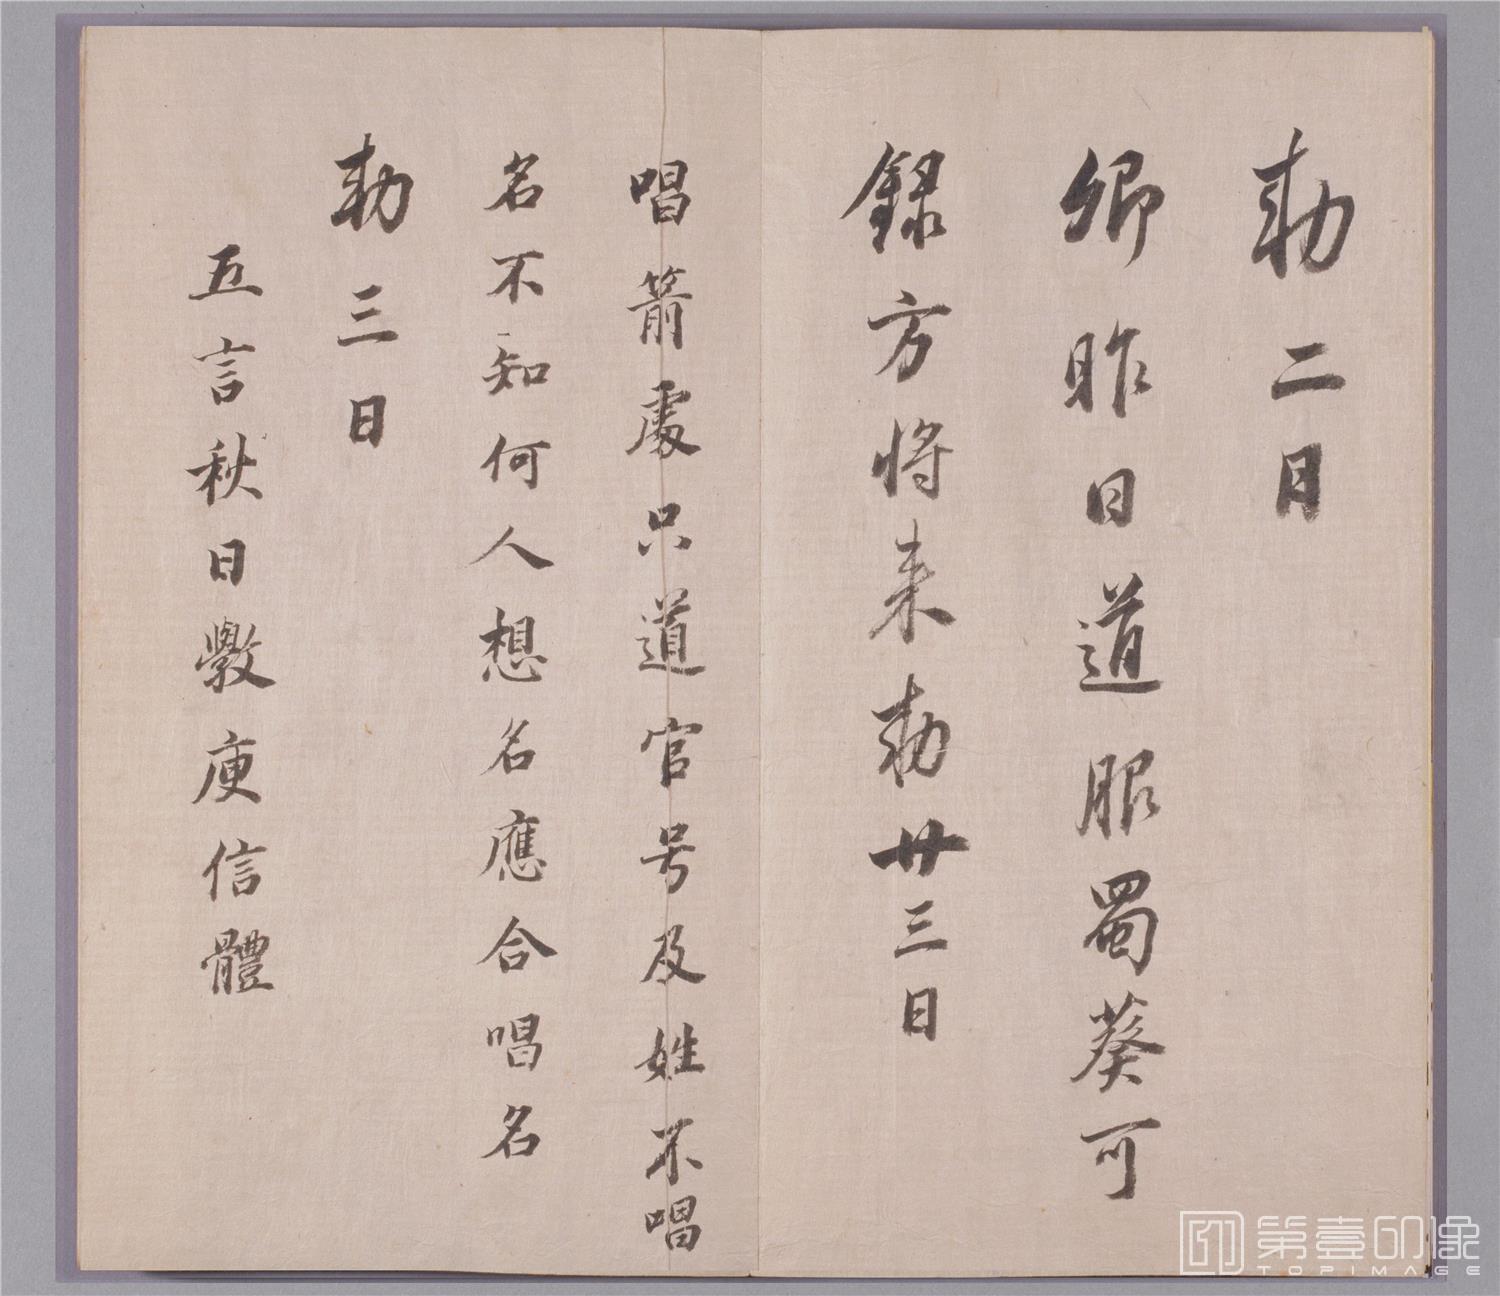 勅二日
卿昨日道服蜀葵可
録方将来勅廿三日
唱箭處只道官号及姓不唱
名不知何人想名應合唱名
勅三日
五言秋日斆庾信體
第壹印像
TOPIMAGE